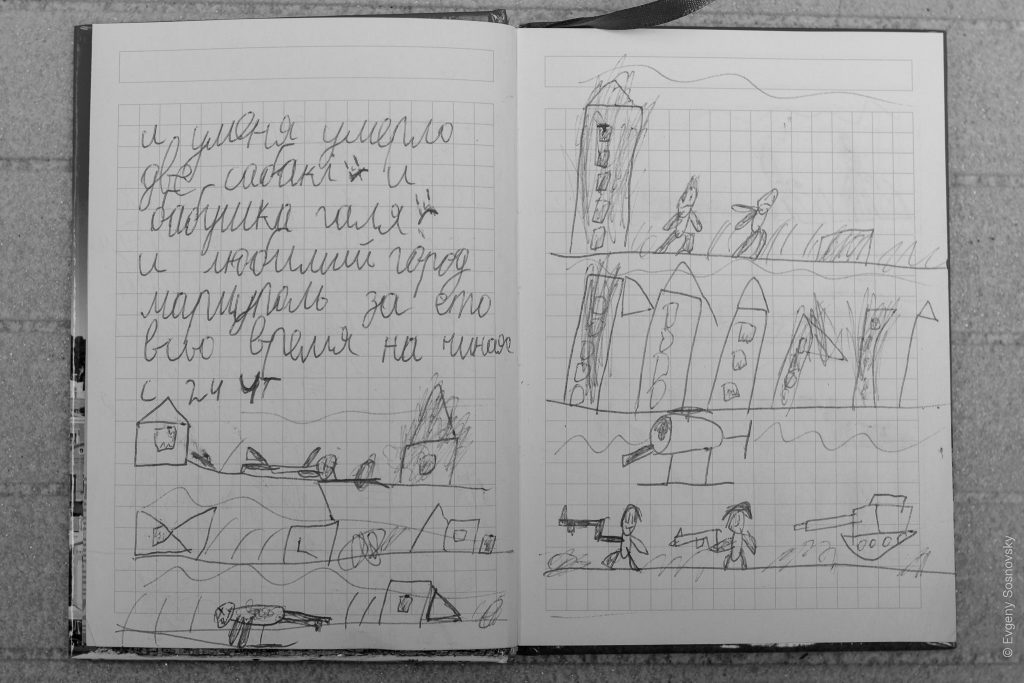 и уменя умерло
две сабаки и
бабушка галя
и любимий город
мариуполь за ето
всю время на чиная
с 24 чт
© Evgeny Sosnovsky